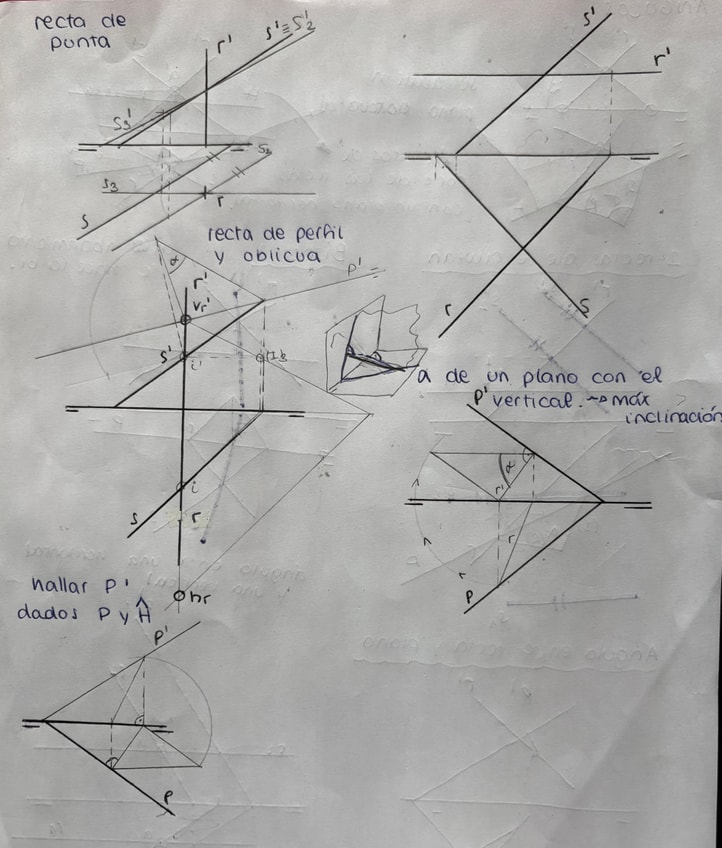 recta de
punta
r'
s'≡S2'
S3'
S2
S3
r
s
s'
r'
r
s
recta de perfil
y oblicua
α
r'
P'
Vr'
s'
i'
i
s
r
hr
α de un plano con el
vertical. → máx
inclinación
P'
α
r'
r
P
hallar P'
dados P y Ĥ
P'
P